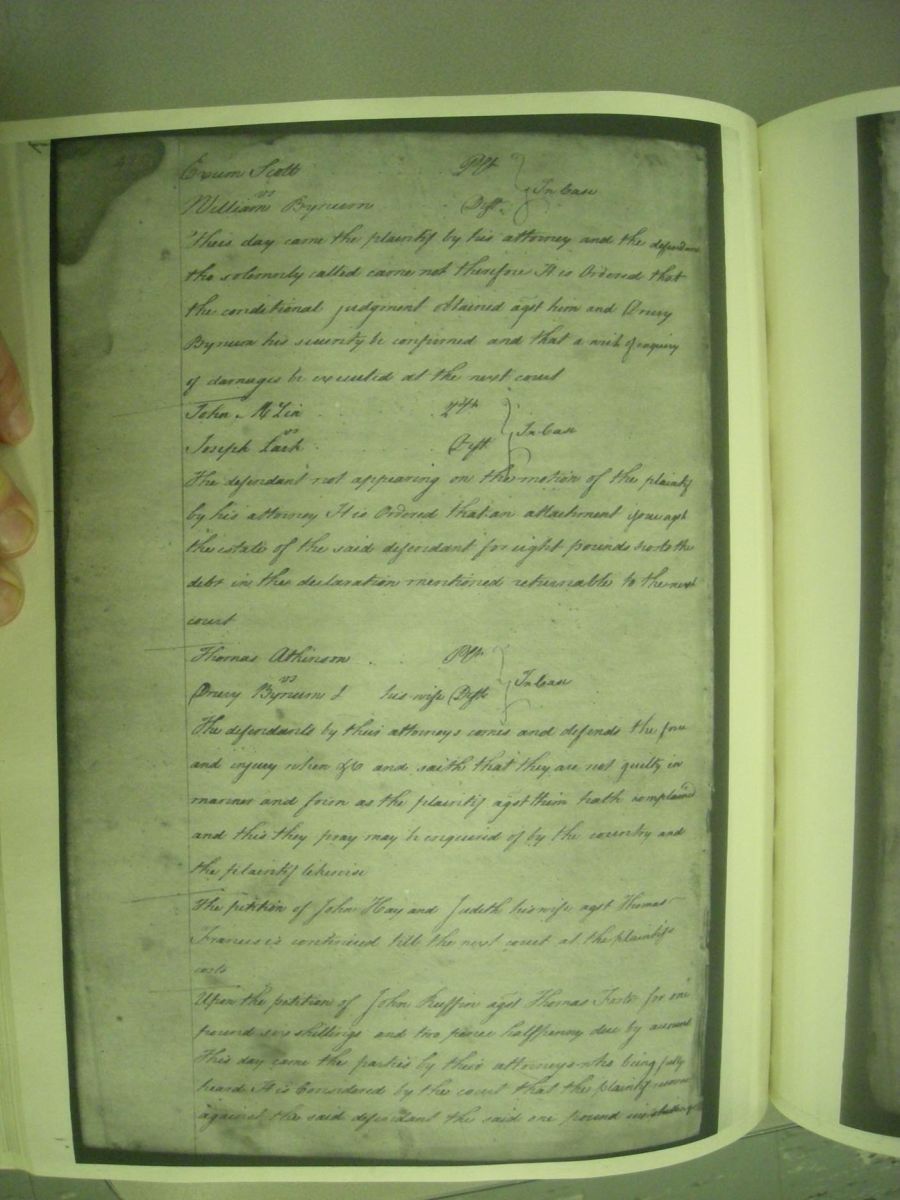 Exum Scott Plt
vs } In Case
William Bynum Dift
This day came the plaintif by his attorney and the defendant
tho solemnly called came not therefore It is Ordered that
the conditional judgment obtained agst him and Drury
Bynum his security be confirmed and that a writ of enquiry
of damages be executed at the next court
John McLin Plt
vs } In Case
Joseph Lark Dift
The defendant not appearing on the motion of the plaintif
by his attorney It is Ordered that an attachment agst
the estate of the said defendant for eight pounds the
debt in the declaration mentioned returnable to the next
court
Thomas Atkinson Plt
vs } In Case
Drury Bynum & his wife Difts
The defendants by their attorneys comes and defends the force
and injury when &c and saith that they are not guilty in
manner and form as the plaintif agst them hath complained
and this they pray may be enquired of by the country and
the plaintif likewise
The petition of John Hay and Judith his wife agst Thomas
Francis is continued till the next court at the plaintifs
costs
Upon the petition of John Ruffin agst Thomas for one
pound six shillings and two pence halfpenny due by account
This day came the parties by their attorneys who being fully
heard It is Considered by the court that the plaintif recover
against the said defendant the said one pound six shillings